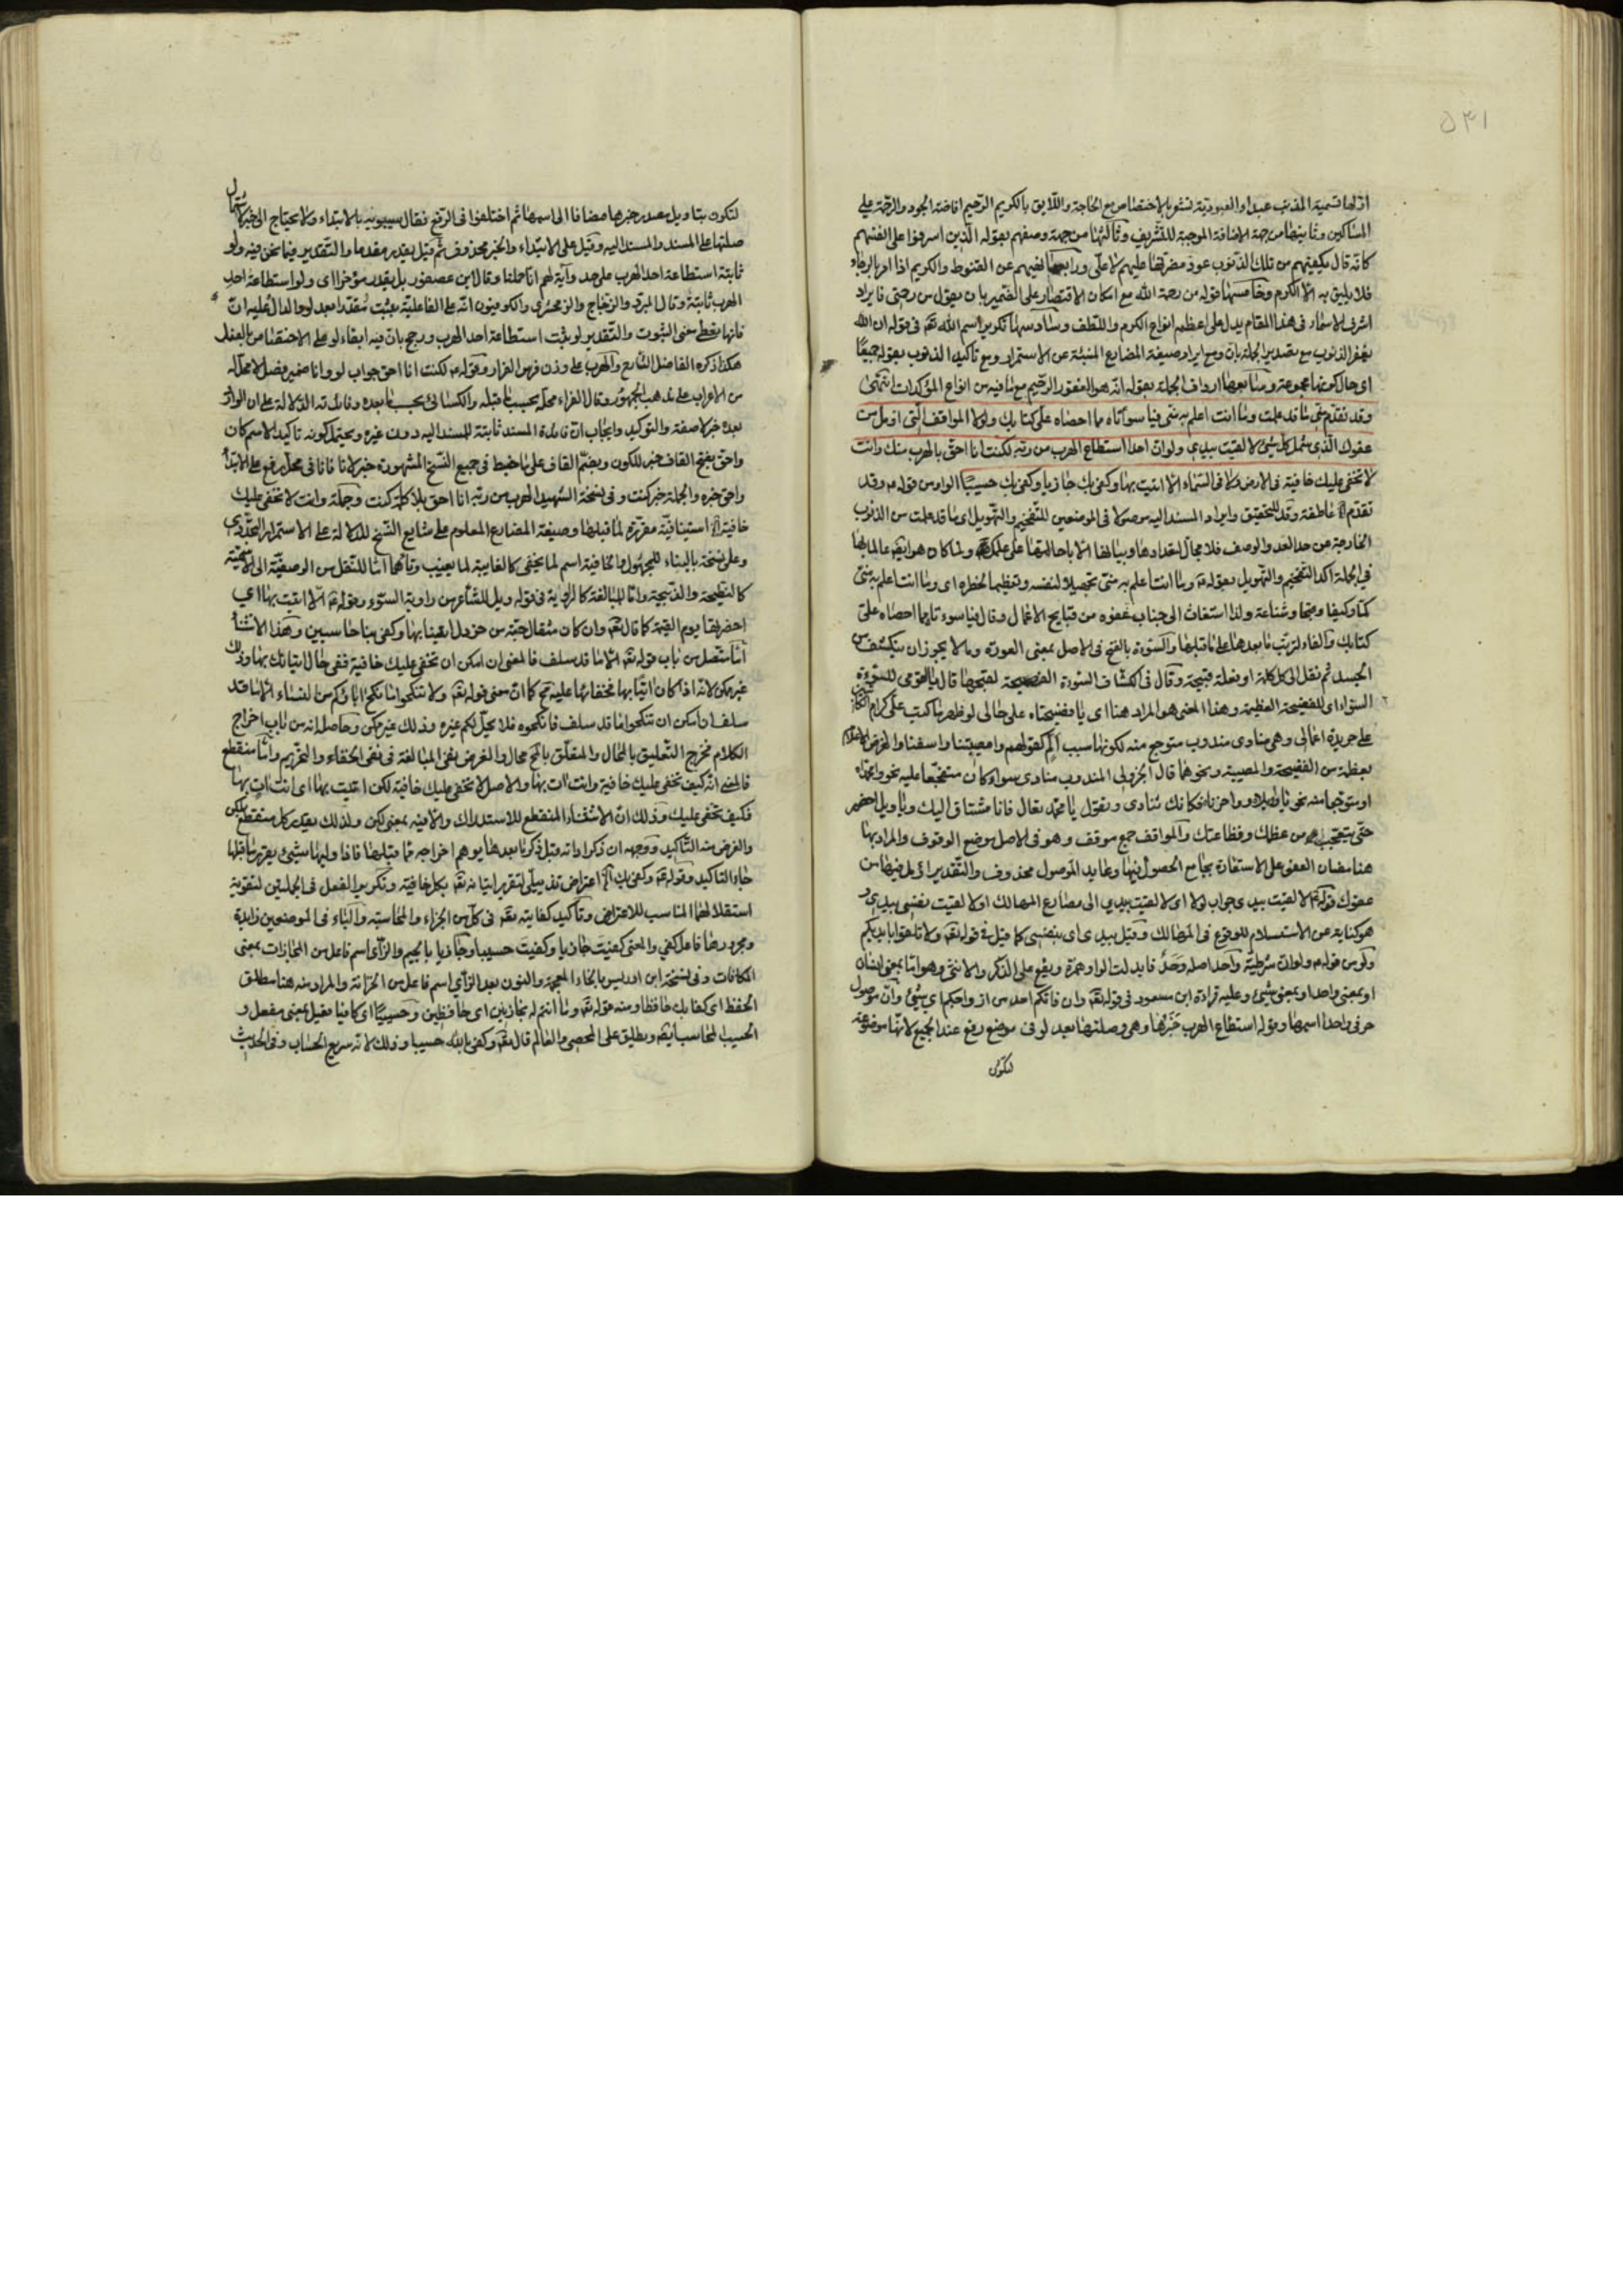 ۵۴۱
اولها تسمية المذنب عبدا والعبودية تشعر بالاختصاص مع الحاجة واللايق بالكريم الرحيم افاضة الجود والرحمة على
المساكين وثانيها من جهة الاضافة الموجبة للتشريف وثالثها من جهة وصفهم بقوله الذين اسرفوا على انفسهم
كانه قال يكفيهم من تلك الذنوب عود مضرتها عليهم لا علي ورابعها نهيهم عن القنوط والكريم اذا امر بالرجاء
فلا يليق به الا الكرم وخامسها قوله من رحمة الله مع امكان الاقتصار على الضمير بان يقول من رحمتي فايراد
اشرف الاسماء في هذا المقام يدل على اعظم انواع الكرم واللطف وسادسها تكرير اسم الله تعه في قوله ان الله
يغفر الذنوب مع تصدير الجملة بان ومع ايراد صيغة المضارع المنبئة عن الاستمرار ومع تاكيد الذنوب بقوله جميعا
اي حال كونها مجموعة وسابعها ارداف الجملة بقوله انه هو الغفور الرحيم مع ما فيه من انواع المؤكدات انتهى
وقد تقدم مني ما قد علمت وما انت اعلم به مني فيا سوأتاه مما احصاه علي كتابك ولولا المواقف التي اؤمل من
عفوك الذي شمل كل شيء لالقيت بيدي ولو ان احدا استطاع الهرب من ربه لكنت انا احق بالهرب منك وانت
لا تخفى عليك خافية في الارض ولا في السماء الا اتيت بها وكفى بك جازيا وكفى بك حسيبا الواو من قوله وقد
تقدم عاطفة وقد للتحقيق وايراد المسند اليه موصولا في الموضعين للتفخيم والتهويل اي ما قد علمت من الذنوب
الخارجة عن حد العد والوصف فلا مجال لتعدادها وبيانها الا باحالتها على علمك ولما كان هو ايضا عالما بها
في الجملة اكد التفخيم والتهويل بقوله وما انت اعلم به مني تجهيلا لنفسه وتعظيما لخطره اي وما انت اعلم به مني
كما وكيفا وقبحا وشناعة ولذا استغاث الى جناب عفوه من قبايح الاعمال وقال فيا سوءتاه مما احصاه علي
كتابك والفاء لترتب ما بعدها على ما قبلها والسوءة بالفتح في الاصل بمعنى العورة وما لا يجوز ان ينكشف من
الجسد ثم نقل الى كل كلمة او فعلة قبيحة وقال في الكشاف السوءة الفضيحة لقبحها قال
السوآء اي للفضيحة العظيمة وهذا المعنى هو المراد هنا اي يا فضيحتاه على حالي لو ظهر ما كتب علي كرام
على جريدة اعمالي وهي منادى مندوب متوجع منه لكونها سبب الم كقولهم وامصيبتنا واسفنا والغرض الاعلام
بعظمة من الفضيحة والمصيبة ونحوهما قال الجزولي المندوب منادى سواء كان متفجعا عليه نحو وامحمداه
او متوجعا منه نحو يا ويلاه وواحزناه فكانك تنادى وتقول يا محمد تعال فانا مشتاق اليك ويا ويل احضر
حتى يتعجب من عظمك وفظاعتك والمواقف جمع موقف وهو في الاصل موضع الوقوف والمراد بها
هنا مظان العفو على الاستعارة بجامع الحصول فيها وعايد الموصول محذوف والتقدير اؤمل فيها من
عفوك قوله لالقيت بيدي جواب لولا اي لالقيت بيدي الى مصارع المهالك او لالقيت نفسي بيدي و
هو كناية عن الاستسلام للوقوع في المهالك وقيل بيدي اي بنفسي كما قيل في قوله تعه ولا تلقوا بايديكم
ولو من قوله ولو ان شرطية واحد اصله وحد فابدلت الواو همزة ويقع على الذكر والانثى وهو اما بمعنى انسان
او بمعنى واحد او بمعنى شيء وعليه قراءة ابن مسعود في قوله تعه وان فاتكم احد من ازواجكم اي شيء وان موصول
حرفي واحدا اسمها وقوله استطاع الهرب خبرها وهي وصلتها بعد لو في موضع رفع عند الجميع لانها موضوعة
لتكون
لتكون بتاويل مصدر خبرها مضافا الى اسمها ثم اختلفوا في الرفع فقال سيبويه بالابتداء ولا يحتاج الى خبر لاشتمال
صلتها على المسند والمسند اليه وقيل على الابتداء والخبر محذوف ثم قيل يقدر مقدما والتقدير فيما نحن فيه ولو
ثابتة استطاعة احد الهرب على حد وآية لهم انا حملنا وقال ابن عصفور بل يقدر مؤخرا اي ولو استطاعة احد
الهرب ثابتة وقال المبرد والزجاج والزمخشري والكوفيون انه على الفاعلية بثبت مقدرا بعد لو الدال عليه ان
فانها تعطي معنى الثبوت والتقدير لو ثبت استطاعة احد الهرب ورجح بان فيه ابقاء لو على الاختصاص بالفعل
هكذا ذكره الفاضل الشارح والهرب على وزن فرس الفرار وقوله لكنت انا احق جواب لو وانا ضمير فصل لا محل له
من الاعراب على مذهب الجمهور وقال الفراء محله بحسب ما قبله والكسائي بحسب ما بعده وفايدته الدلالة على ان الوارد
بعده خبر لا صفة والتوكيد وايجاب ان فايدة المسند ثابتة للمسند اليه دون غيره ويحتمل كونه تاكيد الاسم كان
واحق بفتح القاف خبر للكون وبضم القاف على ما ضبط في جميع النسخ المشهورة خبر لانا فانا في محل رفع على الابتداء
واحق خبره والجملة خبر كنت وفي نسخة الشهيد الهرب من ربه انا احق بلا كلمة كنت وجملة وانت لا تخفى عليك
خافية استينافية مقررة لما قبلها وصيغة المضارع المعلوم على ما شايع النسخ للدلالة على الاستمرار التجددي
وعلى نسخة بالبناء للمجهول والخافية اسم لما يخفى كالغايبة لما يغيب وتاؤهما اما للنقل من الوصفية الى الاسمية
كالنطيحة والذبيحة واما للمبالغة كالراوية في قوله ويل للشاعر من راوية السوء وقوله الا اتيت بها اي
احضرتها يوم القيمة كما قال تعه وان كان مثقال حبة من خردل اتينا بها وكفى بنا حاسبين وهذا الاستثناء
اما متصل من باب قوله تعه الا ما قد سلف فالمعنى ان امكن ان تخفى عليك خافية ففي حال اتيانك بها وذلك
غير ممكن لانه اذا كان آتيا بها فخفاؤها عليه مح كما ان معنى قوله تعه ولا تنكحوا ما نكح اباؤكم من النساء الا ما قد
سلف ان امكن ان تنكحوا ما قد سلف فانكحوه فلا يحل لكم غيره وذلك غير ممكن وحاصله انه من باب اخراج
الكلام مخرج التعليق بالمحال والمتعلق بالمح محال والغرض المبالغة في نفي الخفاء والتحريم واما منقطع
فالمعنى انه كيف تخفى عليك خافية وانت آت بها والاصل لا تخفى عليك خافية لكن اتيت بها اي انت آت بها
فكيف تخفى عليك وذلك ان الاستثناء المنقطع للاستدراك والا فيه بمعنى لكن ولذلك يقدر كل منقطع بلكن
والغرض منه التاكيد ووجهه ان ذكر اداته قبل ذكر ما بعدها يوهم اخراجه مما قبلها فاذا وليها شيء يقرر ما قبلها
جاء التاكيد وقوله وكفى بك اعتراض تذييلي لتقرير اتيانه تعه بكل خافية وتكرير الفعل في الجملتين لتقوية
استقلالهما المناسب للاعتراض وتاكيد كفايته تعه في كل من الجزاء والمحاسبة والباء في الموضعين زايدة
ومجرورها فاعل كفى والمعنى كفيت جازيا وكفيت حسيبا وجازيا بالجيم والزاي اسم فاعل من المجازات بمعنى
المكافات وفي نسخة ابن ادريس بالخاء المعجمة والنون بعد الزاي اسم فاعل من الخزانة والمراد منه هنا مطلق
الحفظ اي كفى بك حافظا ومنه قوله تعه وما انتم له بخازنين اي حافظين وحسيبا اي كافيا فعيل بمعنى مفعل و
الحسيب المحاسب ايضا ويطلق على المحصي والعالم قال تعه وكفى بالله حسيبا وذلك لانه سريع الحساب وفي الحديث